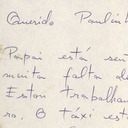 Querido Paulinh
Papai está sen
muita falta de
Estou trabalhan
ro. O táxi est